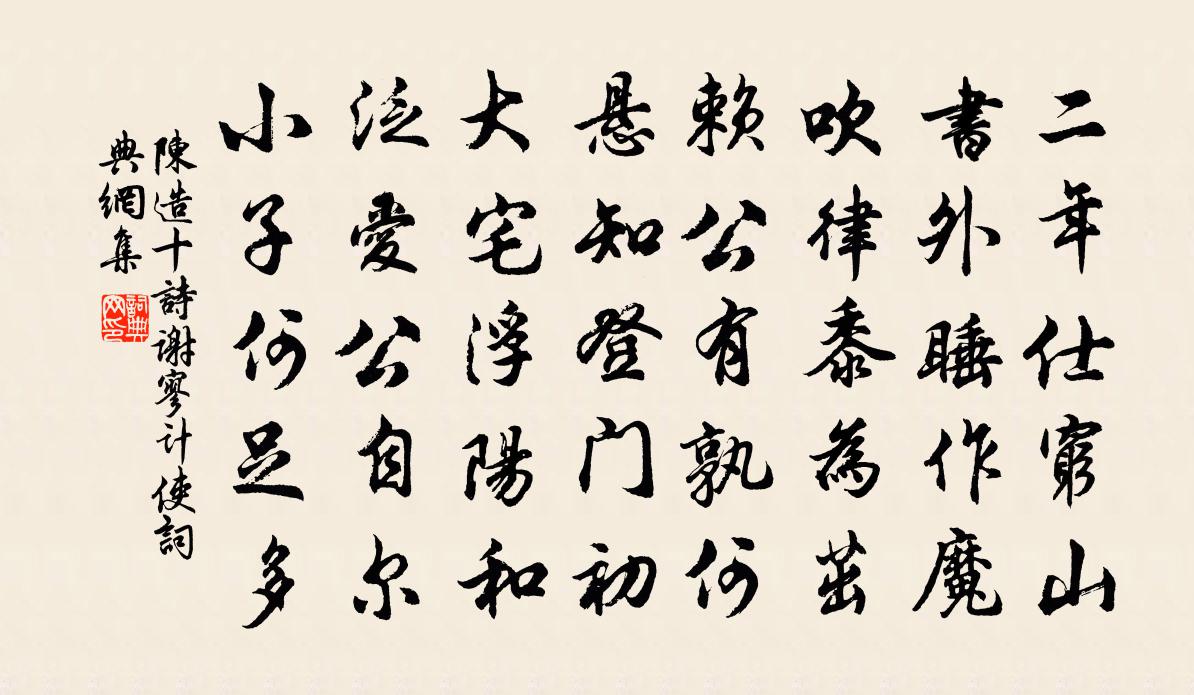 二年仕窮山
書外睡作魔
吹律黍為茁
賴公有孰何
懸知登門初
大宅浮陽和
泛愛公自尔
小子何足多
陳造十詩謝寥计使詞
典網集
詞典
网印